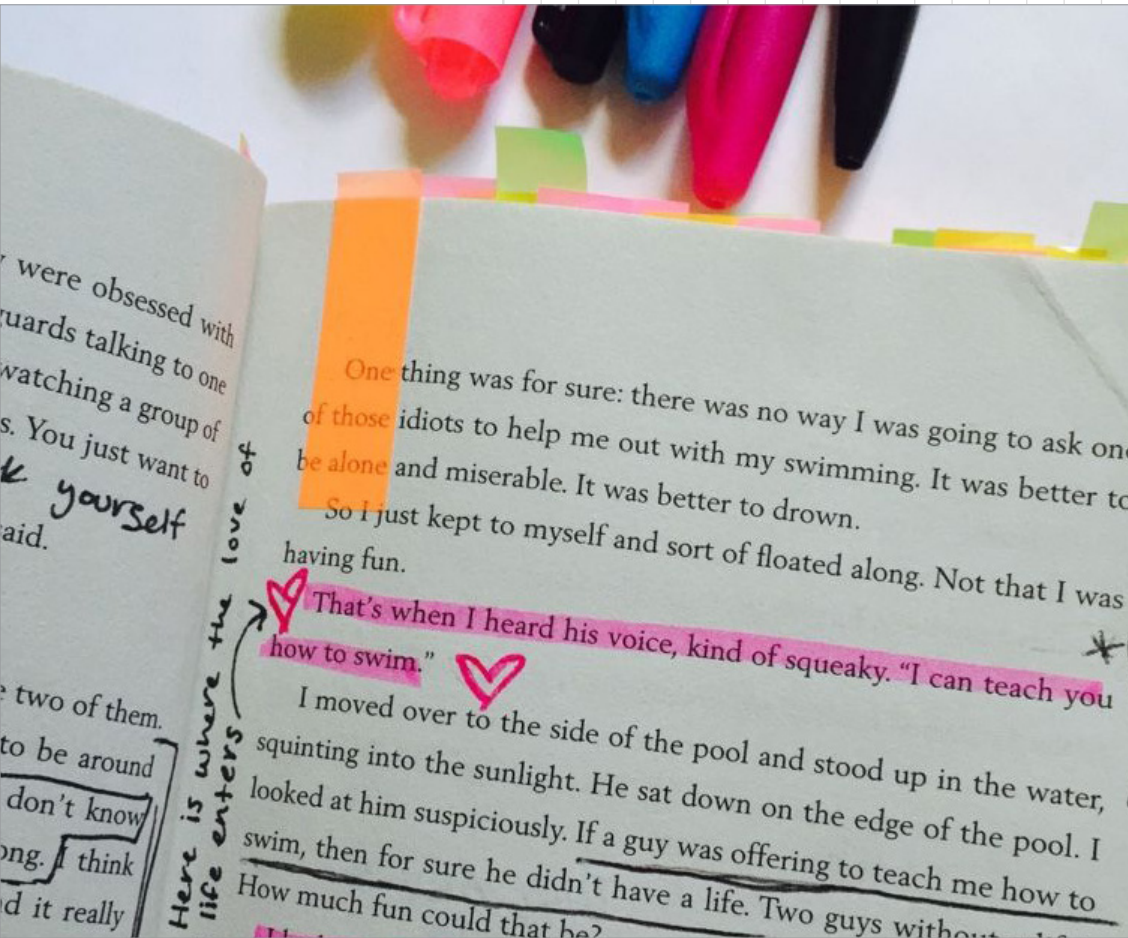 were obsessed with
guards talking to one
watching a group of
s. You just want to
yourself
aid.
two of them.
to be around
don't know
ong. I think
d it really
Here is where the love of
life enters
One thing was for sure: there was no way I was going to ask one
of those idiots to help me out with my swimming. It was better to
be alone and miserable. It was better to drown.
So I just kept to myself and sort of floated along. Not that I was
having fun.
That's when I heard his voice, kind of squeaky. “I can teach you
how to swim.”
I moved over to the side of the pool and stood up in the water,
squinting into the sunlight. He sat down on the edge of the pool. I
looked at him suspiciously. If a guy was offering to teach me how to
swim, then for sure he didn't have a life. Two guys without
How much fun could that be?